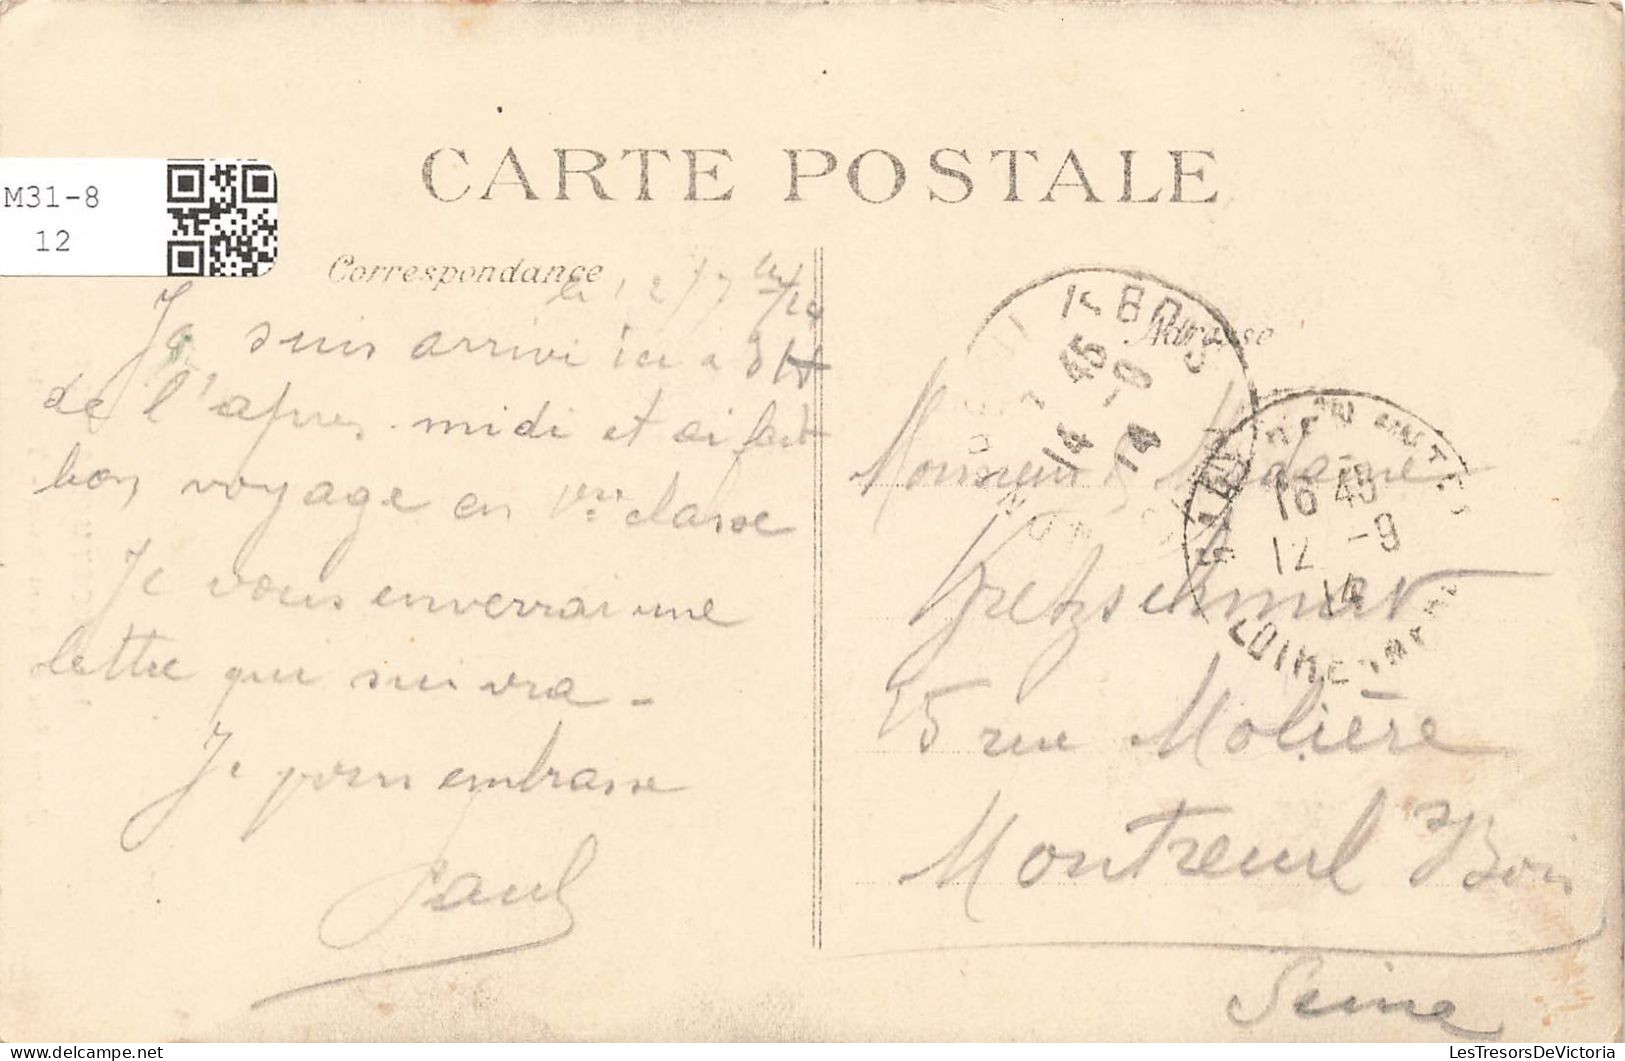 CARTE POSTALE
M31-8
12
Correspondance
Adresse
Je suis arrivé ici a 3 H
de l'apres midi et ai fait
bon voyage en 1ere classe
Je vous enverrai une
lettre qui suivra -
Je vous embrasse
Paul
Monsieur Madame
Gretzschmar
15 rue Molière
Montreuil s/ Bois
Seine
16 45
12 -9
14
45
-9
14
14
LOIRE INFRE
LesTresorsDeVictoria